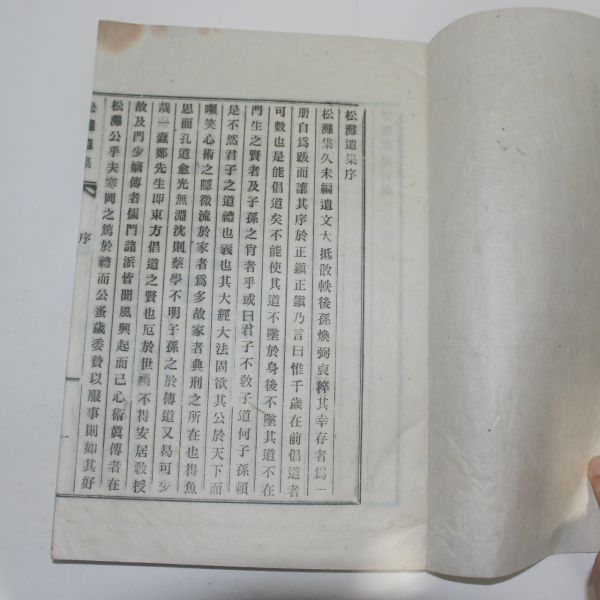 松灘遺集序
松灘集久未編遺文大抵散軼後孫煥弼裒稡其幸存者爲一
册自爲跋而讓其序於正鎭正鎭乃言曰惟千歲在前倡道者
可數也是能倡道矣不能使其道不墜於身後不墜其道不在
門生之賢者及子孫之肖者乎或曰君子不敎子道何子孫賴
是不然君子之道禮也義也其大經大法固欲其公於天下而
嚬笑心術之隱微流於家者爲多故家者典刑之所在也得魚
思而孔道愈光無淵沈則蔡學不明子孫之於傳道又曷可少
哉一蠹鄭先生卽東方倡道之賢也厄於世禍不得安居敎授
故及門少嫡傳者儒門諸派皆聞風興起而已心術眞傳者在
松灘公乎夫寒岡之篤於禮而公蚤歲委贄以服事則如其好
松灘遺集
序